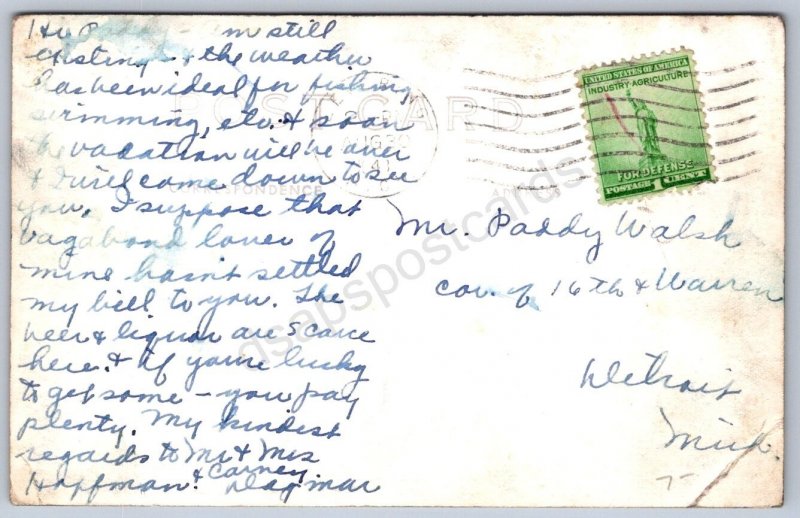 Hi P m still
existing - & the weather
has been ideal for fishing
swimming, etc. & soon
the vacation will be over
& I will come down to see
you. I suppose that
vagabond lover of
mine hasn't settled
my bill to you. The
beer & liquor are scarce
here. & if you're lucky
to get some - you pay
plenty. My kindest
regards to Mr & Mrs
Hoffman. & Carney
Dagmar
POST CARD
CORRESPONDENCE
UNITED STATES OF AMERICA
INDUSTRY AGRICULTURE
FOR DEFENSE
POSTAGE 1 CENT
Mr. Paddy Walsh
cor. of 16th & Warren
Detroit
Mich.